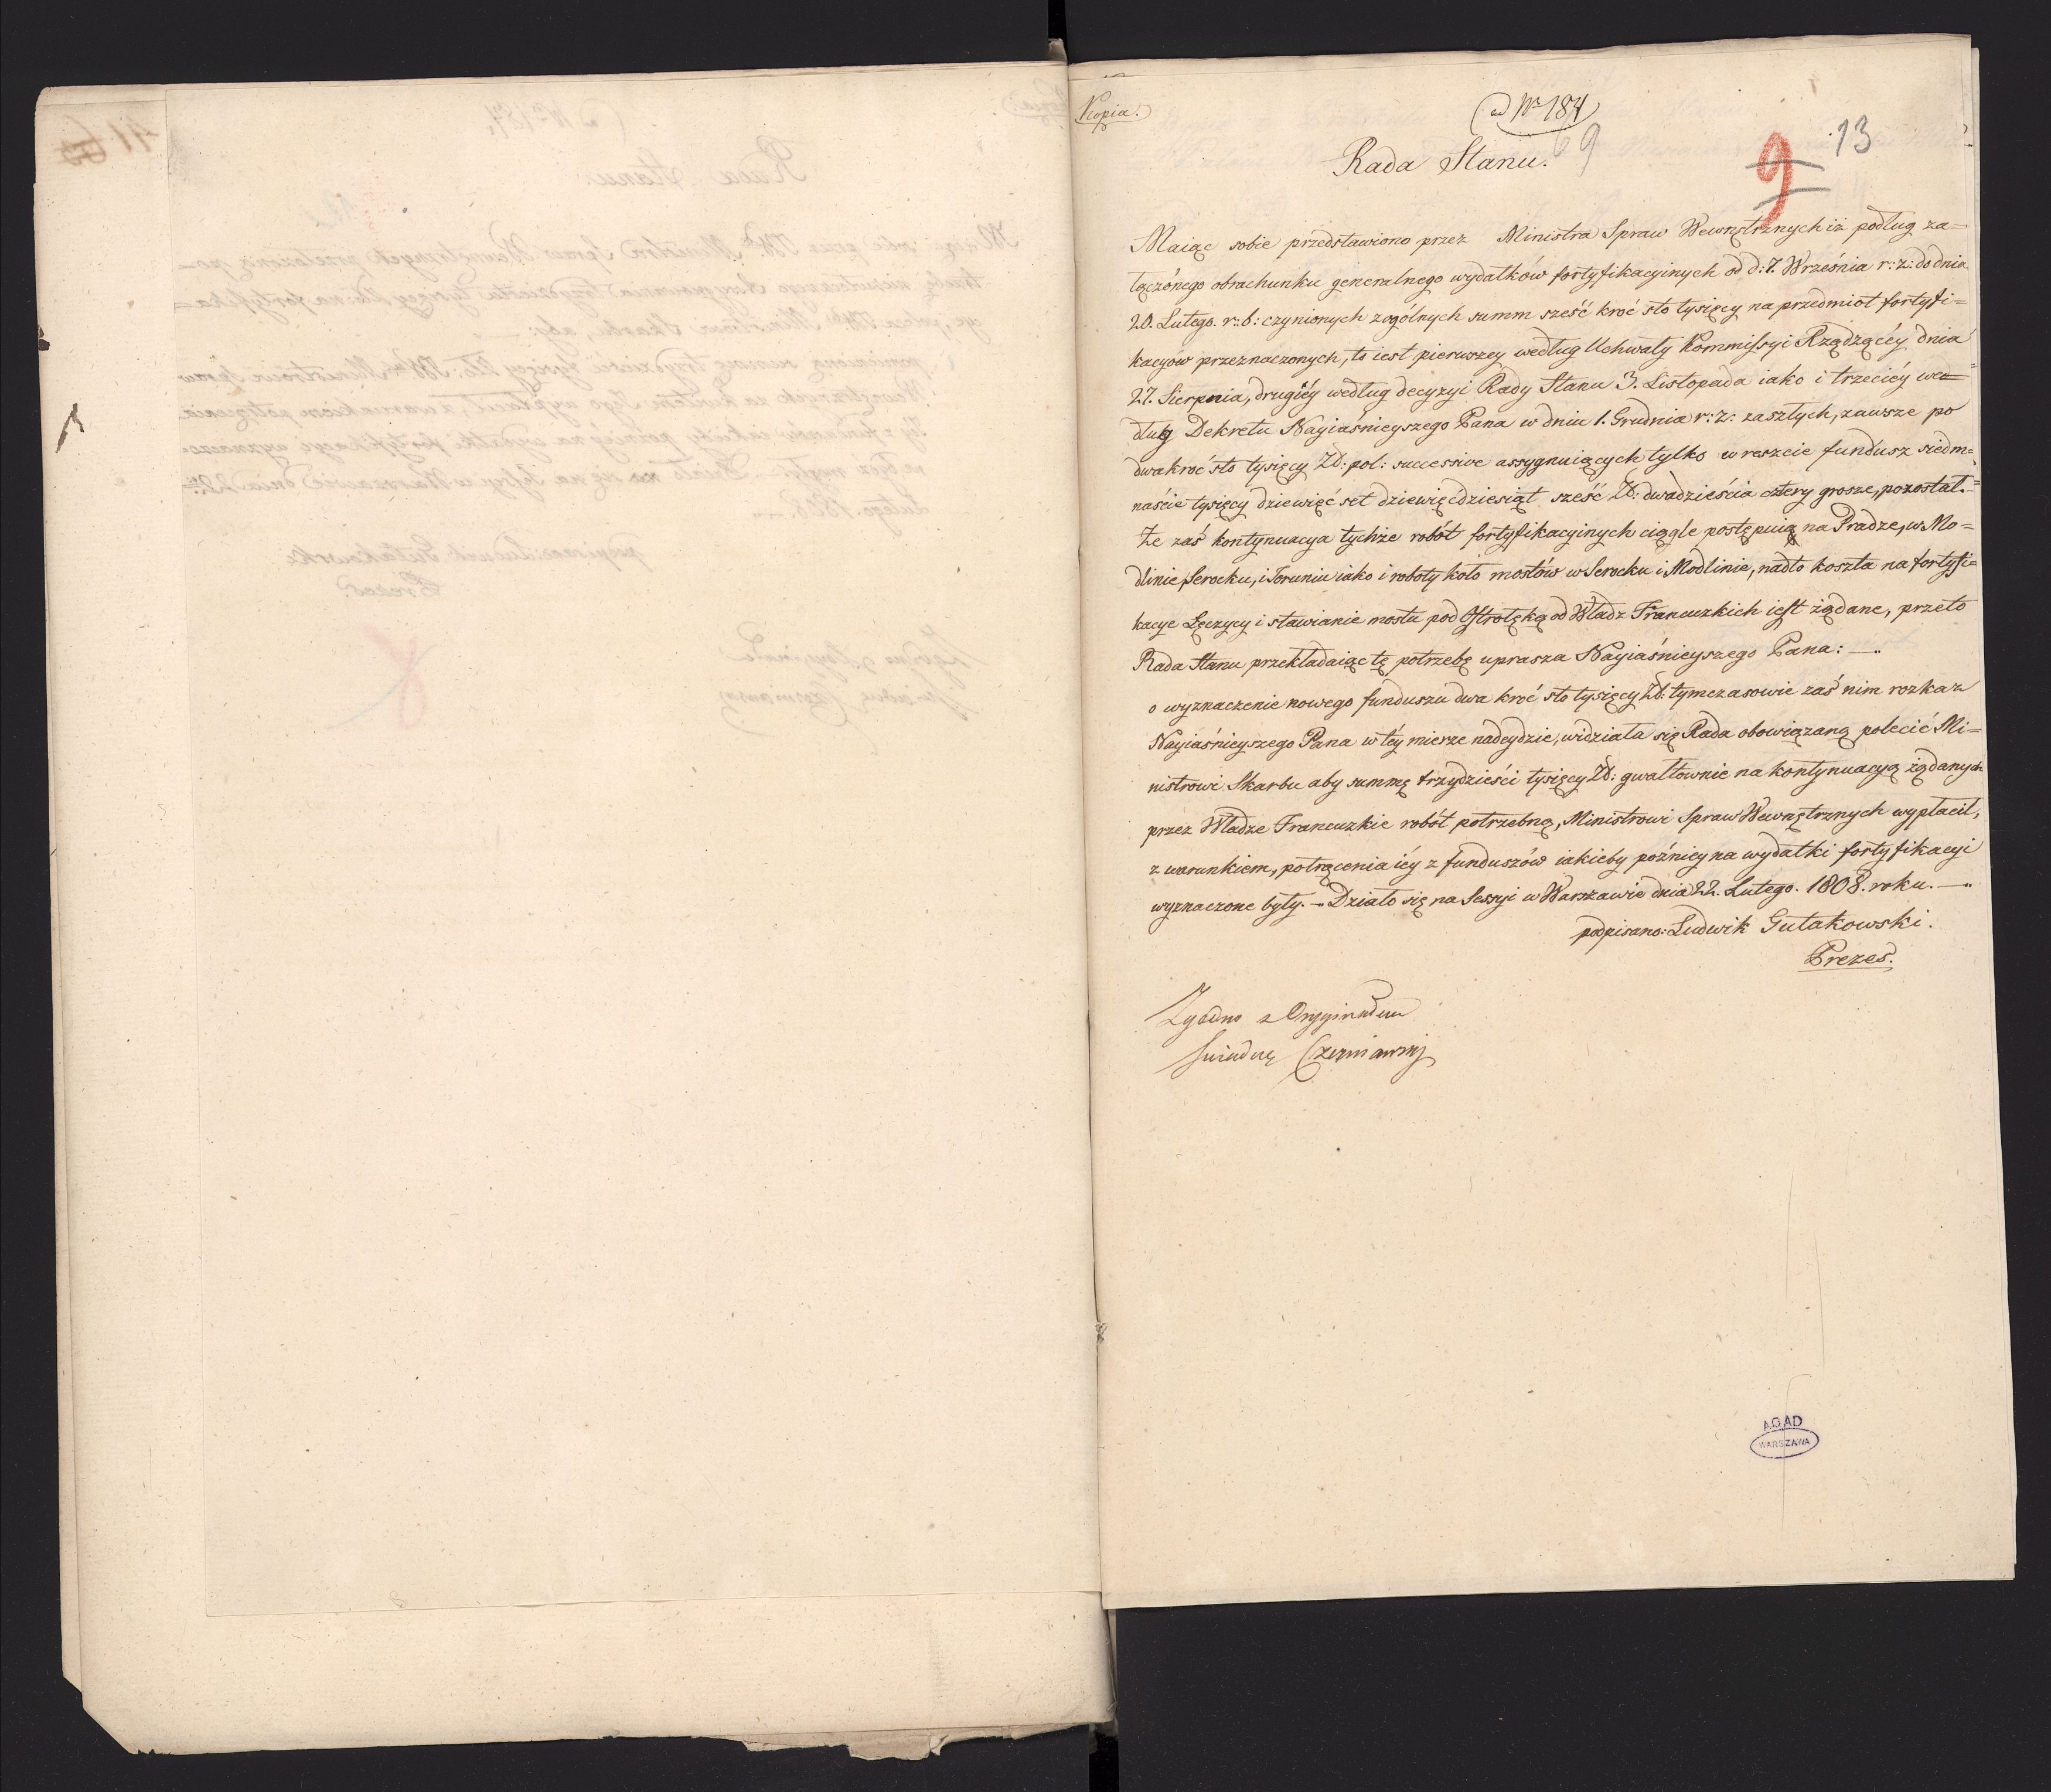 Kopia.
ad Nro 184
69
13
9
Rada Stanu.
Maiąc sobie przedstawiono przez Ministra Spraw Wewnętrznych iż podług za=
łączónego obrachunku generalnego wydatków fortyfikacyinych od d: 7. Września r: z: do dnia
20. Lutego. r: b: czynionych z ogólnych summ sześć kroć sto tysięcy na przedmiot fortyfi=
kacyow przeznaczonych, to iest pierwszey według Uchwały Kommissyi Rządzącéy dnia
27. Sierpnia, drugiéy według decyzyi Rady Stanu 3. Listopada iako i trzeciéy we=
dług Dekretu Nayiaśnieyszego Pana w dniu 1. Grudnia r: z: zaszłych, zawsze po
dwakroć sto tysięcy Zł: pol: successive assygnuiących tylko w reszcie fundusz siedm=
naście tysięcy dziewięć set dziewięćdziesiąt sześć Zł: dwadzieścia cztery grosze, pozostał.=
Że zaś kontynuacya tychże robót fortyfikacyinych ciągle postępuią na Pradze, w Mo=
dlinie, Serocku, i Toruniu iako i roboty koło mostów w Serocku i Modlinie, nadto koszta na fortyfi=
kacye Łęczycy i stawianie mostu pod Ostrołęką od Władz Francuzkich iest żądane, przeto
Rada Stanu przekładaiąc tę potrzebę uprasza Nayiaśnieyszego Pana: —
o wyznaczenie nowego funduszu dwa kroć sto tysięcy Zł: tymczasowie zaś nim rozkaz
Nayiaśnieyszego Pana w téy mierze nadeydzie, widziała się Rada obowiązaną polecić Mi=
nistrowi Skarbu aby summę trzydzieści tysięcy Zł: gwałtownie na kontynuacyą żądanych
przez Władze Francuzkie robót potrzebną, Ministrowi Spraw Wewnętrznych wypłacił,
z warunkiem, potrącenia iéy z funduszów iakieby późniey na wydatki fortyfikacyi
wyznaczone były. — Działo się na Sessyi w Warszawie dnia 22. Lutego. 1808. roku. —
podpisano: Ludwik Gutakowski.
Prezes.
Zgodno z Oryginałem
świadczę Czerniawski
AGAD
WARSZAWA